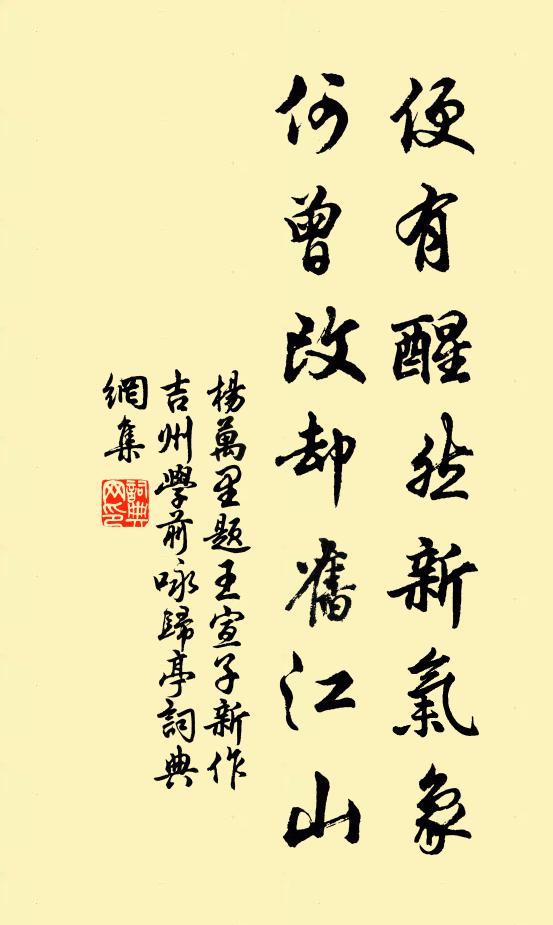 便有醒然新氣象
何曾改却舊江山
楊萬里題王宣子新作
吉州學前咏歸亭詞典
網集
詞典
网印